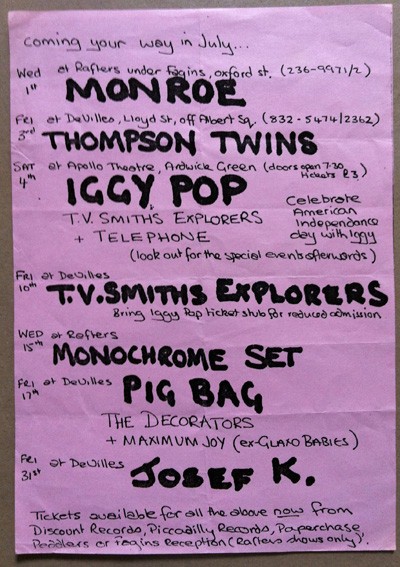 Coming your way in July...
Wed 1st at Rafters under Fagins, oxford st. (236-9971/2)
MONROE
FRI 3rd at DeVilles, Lloyd St, off Albert Sq. (832-5474/2362)
THOMPSON TWINS
SAT 4th at Apollo Theatre, Ardwick Green (doors open 7.30 tickets £3)
IGGY POP
T.V. SMITHS EXPLORERS
+ TELEPHONE
Celebrate
American
Independance
day with Iggy
(look out for the special events afterwards)
FRI 10th at DeVilles
T.V. SMITHS EXPLORERS
Bring Iggy Pop ticket stub for reduced admission
WED 15th at Rafters
MONOCHROME SET
FRI 17th at DeVilles
PIG BAG
THE DECORATORS
+ MAXIMUM JOY (ex-GLAXO BABIES)
FRI 31st at DeVilles
JOSEF K.
Tickets available for all the above now from
Discount Records, Piccadilly Records, Paperchase,
Peddlers or Fagins Reception (Rafters shows only).